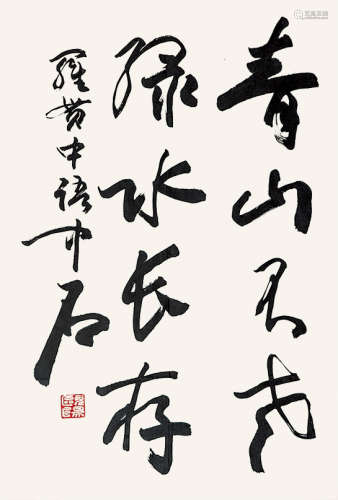 青山不老
绿水长存
羅贯中語中石